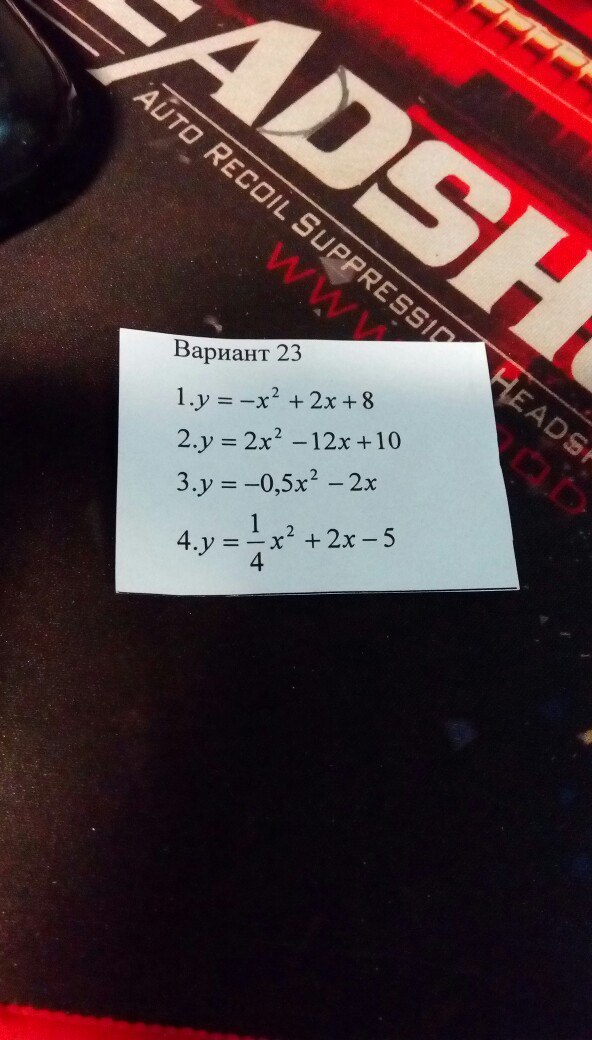 EADSH
AUTO RECOIL SUPPRESSION
WWW
HEADSH
Вариант 23
1.y = −x² + 2x + 8
2.y = 2x² − 12x + 10
3.y = −0,5x² − 2x
4.y = 1/4 x² + 2x − 5